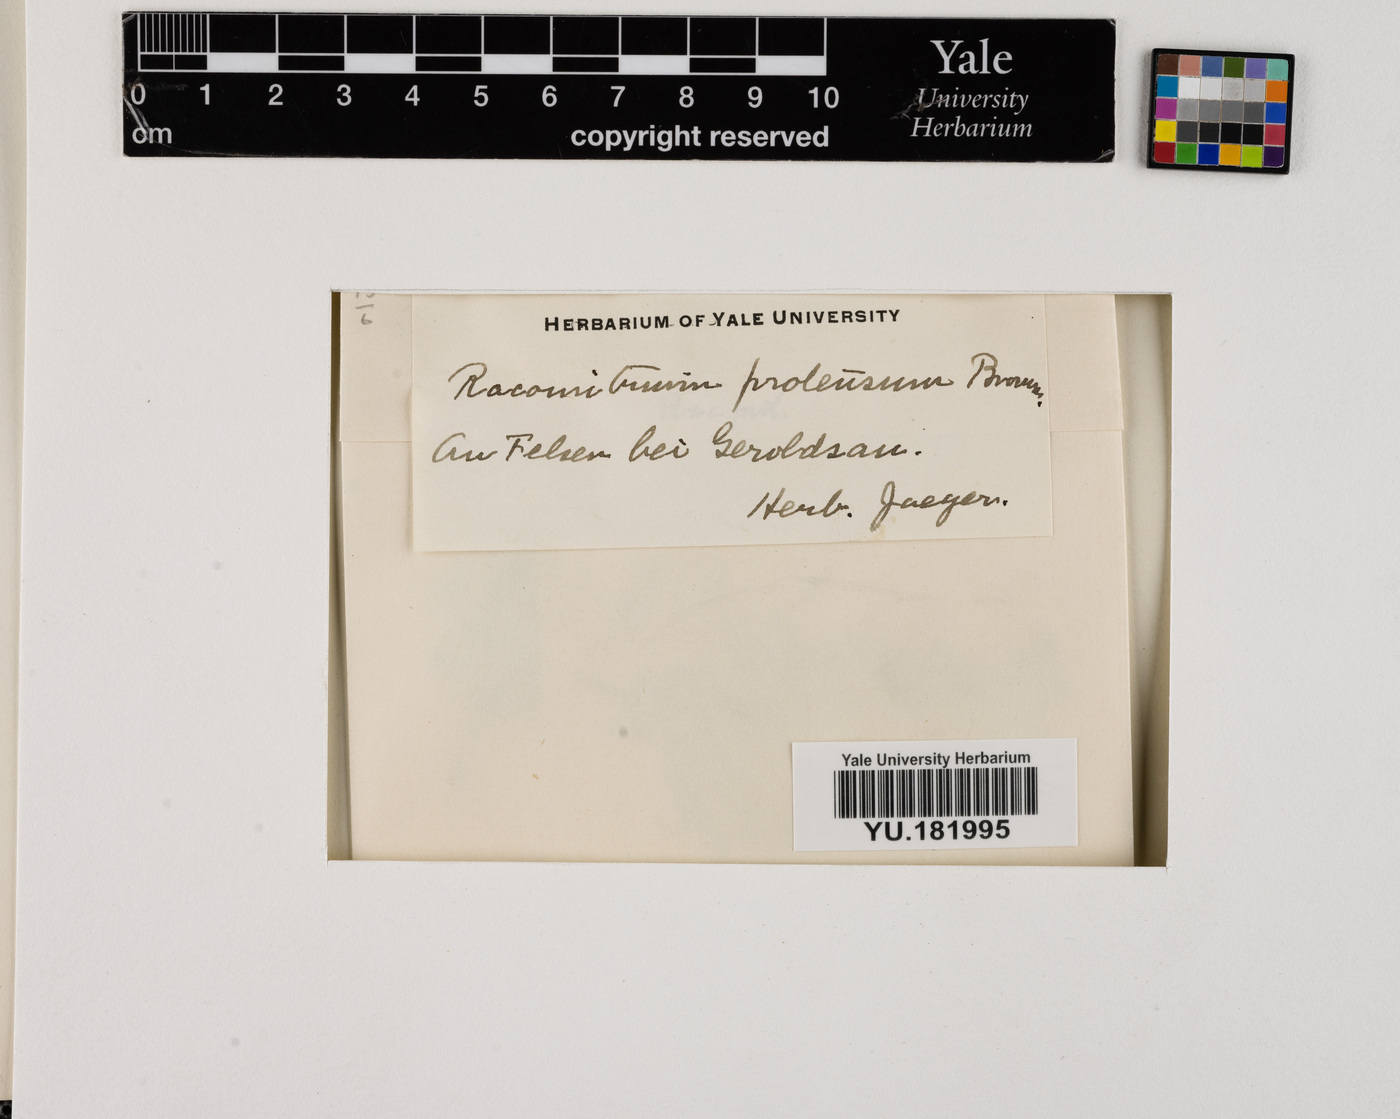 0 1 2 3 4 5 6 7 8 9 10
cm
copyright reserved
Yale
University
Herbarium
HERBARIUM OF YALE UNIVERSITY
Racomitrium protensum Braun.
An Felsen bei Geroldsau.
Herb. Jaeger.
Yale University Herbarium
YU.181995